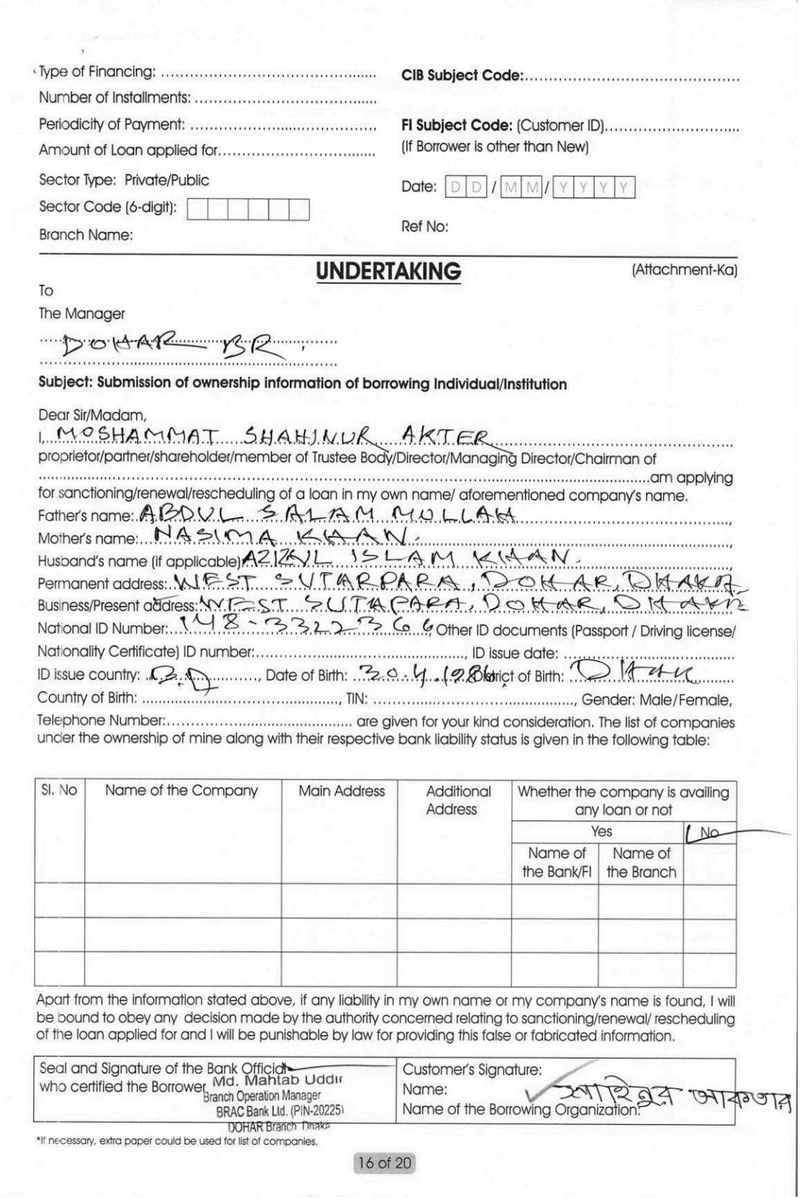 Type of Financing: ................................................ CIB Subject Code:................................................
Number of Installments: ........................................
Periodicity of Payment: ......................................... FI Subject Code: (Customer ID)..............................
Amount of Loan applied for................................... (If Borrower is other than New)
Sector Type: Private/Public Date: D D / M M / Y Y Y Y
Sector Code (6-digit):
Branch Name: Ref No:
UNDERTAKING (Attachment-Ka)
To
The Manager
DOHAR BR,
Subject: Submission of ownership information of borrowing Individual/Institution
Dear Sir/Madam,
I, MOSHAMMAT SHAHINUR AKTER
proprietor/partner/shareholder/member of Trustee Body/Director/Managing Director/Chairman of
................................................am applying
for sanctioning/renewal/rescheduling of a loan in my own name/ aforementioned company's name.
Father's name: ABDUL SALAM MOLLAH,
Mother's name: NASIMA KHAN.,
Husband's name (if applicable) AZIZUL ISLAM KHAN.
Permanent address: WEST SUTARPARA, DOHAR, DHAKA
Business/Present address: WEST SUTAPARA, DOHAR, DHAKA
National ID Number: 148-3322366 Other ID documents (Passport / Driving license/
Nationality Certificate) ID number:................................................, ID issue date: ................................................
ID issue country: B.D, Date of Birth: 30.4.1986, District of Birth: DHAK
Country of Birth: ................................................, TIN: ................................................, Gender: Male/Female,
Telephone Number:................................................ are given for your kind consideration. The list of companies
under the ownership of mine along with their respective bank liability status is given in the following table:
Sl. No Name of the Company Main Address Additional Address Whether the company is availing any loan or not
Yes No
Name of the Bank/FI Name of the Branch
Apart from the information stated above, if any liability in my own name or my company's name is found, I will
be bound to obey any decision made by the authority concerned relating to sanctioning/renewal/ rescheduling
of the loan applied for and I will be punishable by law for providing this false or fabricated information.
Seal and Signature of the Bank Official
who certified the Borrower
Md. Mahtab Uddin
Branch Operation Manager
BRAC Bank Ltd. (PIN-20225)
DOHAR Branch Dhaka
Customer's Signature:
Name: শাহিনুর আকতার
Name of the Borrowing Organization:
*If necessary, extra paper could be used for list of companies.
16 of 20